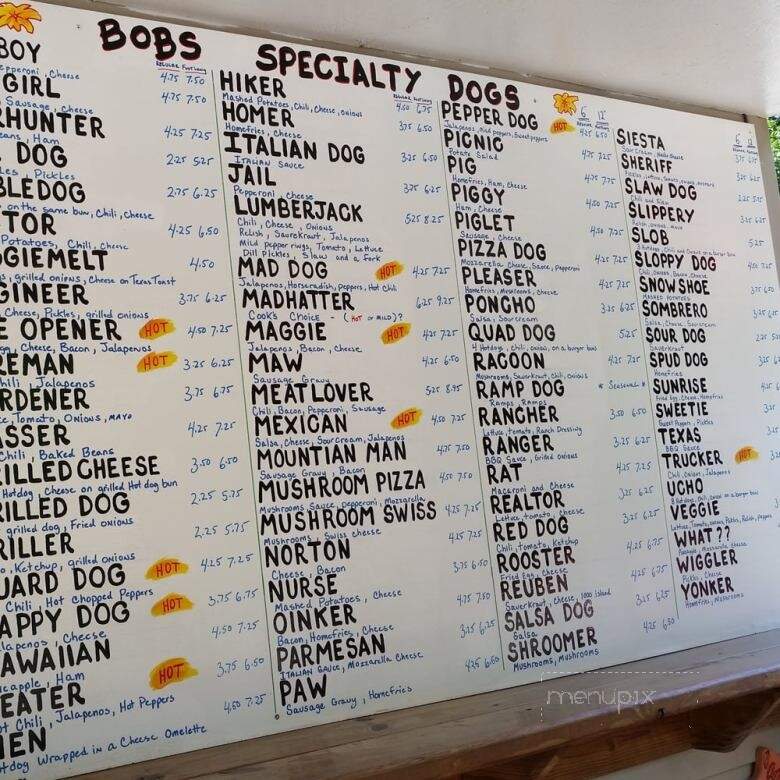 BOBS SPECIALTY DOGS
REGULAR FOOTLONG
BOY 4.75 7.50
Pepperoni, Cheese
GIRL 4.75 7.50
Sausage, Cheese
HUNTER 4.25 7.25
Beans, Ham
DOG 2.25 5.25
Pickles
BLEDOG 2.75 6.25
on the same bun, Chili, Cheese
TOR 4.25 6.50
Potatoes, Chili, Cheese
GIEMELT 4.50
grilled onions, Cheese on Texas Toast
GINEER 3.75 6.25
Cheese, Pickles, grilled onions
E OPENER HOT 4.50 7.25
Cheese, Bacon, Jalapenos
REMAN HOT 3.25 6.25
Chili, Jalapenos
RDENER 3.75 6.75
Tomato, Onions, MAYO
ASSER 4.25 7.25
Chili, Baked Beans
RILLED CHEESE 3.50 6.50
Hotdog, Cheese on grilled Hotdog bun
RILLED DOG 2.25 5.75
grilled dog, Fried onions
RILLER 2.25 5.75
Ketchup, grilled onions
UARD DOG HOT 4.25 7.25
Chili, Hot Chopped Peppers
APPY DOG HOT 3.75 6.75
Jalapenos, Cheese
AWAIIAN 4.50 7.25
Pineapple, Ham
EATER HOT 3.75 6.50
Hot Chili, Jalapenos, Hot Peppers
EN 4.50 7.25
Hotdog Wrapped in a Cheese Omelette
REGULAR FOOTLONG
HIKER 4.50 6.75
Mashed Potatoes, Chili, Cheese, Onions
HOMER 3.75 6.50
Homefries, Cheese
ITALIAN DOG 3.25 6.50
ITALIAN SAUCE
JAIL 3.75 6.25
Pepperoni, Cheese
LUMBERJACK 5.25 8.25
Chili, Cheese, Onions
Relish, Saurkraut, Jalapenos
Mild pepper rings, Tomato, Lettuce
Dill Pickles, Slaw and a Fork
MAD DOG HOT 4.25 7.25
Jalapenos, Horseradish, peppers, Hot Chili
MADHATTER 6.25 9.25
Cook's Choice - (HOT or MILD)??
MAGGIE HOT 4.25 7.25
Jalapenos, Bacon, Cheese
MAW 4.25 6.50
Sausage Gravy
MEATLOVER 5.25 8.75
Chili, Bacon, Pepperoni, Sausage
MEXICAN HOT 4.50 7.25
Salsa, Cheese, Sour Cream, Jalapenos
MOUNTIAN MAN 4.75 7.50
Sausage Gravy, Bacon
MUSHROOM PIZZA 4.50 7.50
Mushrooms, Sauce, pepperoni, Mozzarella
MUSHROOM SWISS 4.25 7.25
Mushrooms, Swiss cheese
NORTON 4.25 7.25
Cheese, Bacon
NURSE 3.75 6.50
Mashed Potatoes, Cheese
OINKER 4.75 7.50
Bacon, Homefries, Cheese
PARMESAN 3.25 6.25
ITALIAN Sauce, Mozzarella Cheese
PAW 4.25 6.50
Sausage Gravy, Homefries
6 12
REGULAR FOOTLONG
PEPPER DOG HOT 4.25 6.50
Jalapenos, Mild peppers, Sweet peppers
PICNIC 4.75 7.25
Potato Salad
PIG 4.75 7.75
Homefries, Ham, Cheese
PIGGY 4.50 7.25
Ham, Cheese
PIGLET 4.50 7.25
Sausage, Cheese
PIZZA DOG 4.50 7.25
Mozzarella Cheese, Sauce, Pepperoni
PLEASER 4.25 7.25
Homefries, Mushrooms, Cheese
PONCHO 3.25 6.25
Salsa, Sour Cream
QUAD DOG 5.25
4 Hotdogs, Chili, onions, on a burger bun
RAGOON 4.25 7.25
Mushrooms, Saurkraut, Chili, Onions
RAMP DOG * Seasonal *
Ramps, Ramps
RANCHER 3.50 6.50
Lettuce, tomato, Ranch Dressing
RANGER 3.25 6.25
BBQ Sauce, Grilled onions
RAT 4.25 7.25
Macaroni and Cheese
REALTOR 3.25 6.25
Lettuce, tomato, cheese
RED DOG 3.25 6.25
Chili, tomato, Ketchup
ROOSTER 4.25 6.75
Fried Egg, Cheese
REUBEN 4.25 6.75
Saurkraut, Cheese, 1000 Island
SALSA DOG 3.25 6.25
Salsa
SHROOMER 4.25 6.50
Mushrooms, Mushrooms
6 12
SIESTA
Sour Cream, Nacho Cheese
SHERIFF
Pickles, Lettuce, Tomato, onions, mustard
SLAW DOG
Chili and Slaw
SLIPPERY
Relish, onions, Mayo
SLOB 5.25
3 Hotdogs, Chili and Onions on a burger bun
SLOPPY DOG 4.25 7.25
Chili, Onions, Bacon, Cheese
SNOW SHOE
MASHED POTATOES
SOMBRERO
Salsa, Cheese, Sourcream
SOUR DOG
Saurkraut
SPUD DOG
Homefries
SUNRISE
Fried Egg, Cheese, Homefries
SWEETIE
Sweet Peppers, Pickles
TEXAS
BBQ Sauce
TRUCKER HOT
Chili, Onions, Jalapenos
UCHO
8 Hotdogs, Chili, Onions on a burger bun
VEGGIE
Lettuce, Tomato, onions, Pickles, Relish, peppers
WHAT??
Pineapple, Mozzarella Cheese
WIGGLER
Pickles, Cheese
YONKER
Homefries, Mushrooms
menupix